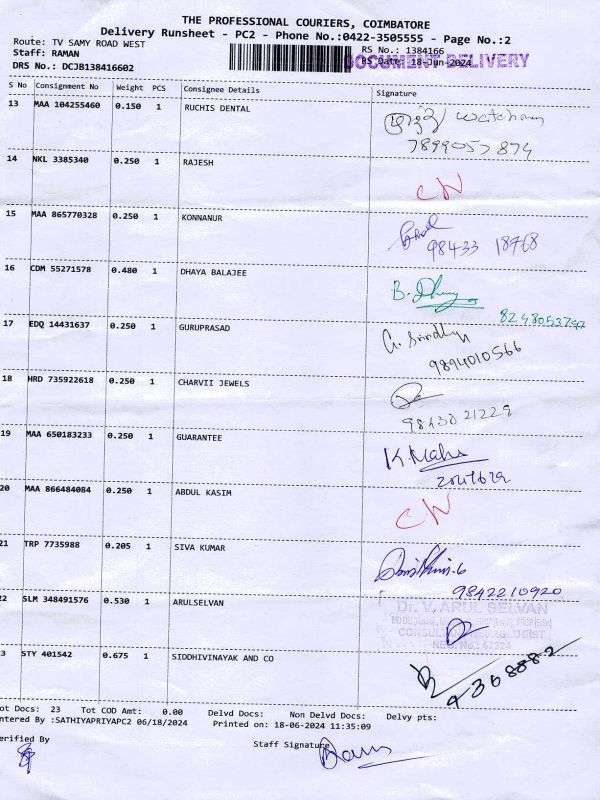 THE PROFESSIONAL COURIERS, COIMBATORE
Delivery Runsheet - PC2 - Phone No.:0422-3505555 - Page No.:2
Route: TV SAMY ROAD WEST
Staff: RAMAN
RS No.: 1384166
DRS No.: DCJB138416602
RS Date: 18-Jun-2024
DOCUMENT DELIVERY
S No Consignment No Weight PCS Consignee Details Signature
13 MAA 104255460 0.150 1 RUCHIS DENTAL
watchman
7899057874
14 NKL 3385340 0.250 1 RAJESH
CN
15 MAA 865770328 0.250 1 KONNANUR
98433 18768
16 CDM 55271578 0.480 1 DHAYA BALAJEE
8248053797
17 EDQ 14431637 0.250 1 GURUPRASAD
9894010566
18 HRD 735922618 0.250 1 CHARVII JEWELS
9843021229
19 MAA 650183233 0.250 1 GUARANTEE
K.Maha
20 MAA 866484084 0.250 1 ABDUL KASIM
CN
21 TRP 7735988 0.205 1 SIVA KUMAR
9842210920
22 SLM 348491576 0.530 1 ARULSELVAN
Dr. V. ARUL SELVAN
REG. No.: 67324
3 STY 401542 0.675 1 SIDDHIVINAYAK AND CO
9368882
ot Docs: 23 Tot COD Amt: 0.00 Delvd Docs: Non Delvd Docs: Delvy pts:
ntered By :SATHIYAPRIYAPC2 06/18/2024 Printed on: 18-06-2024 11:35:09
erified By
Staff Signature